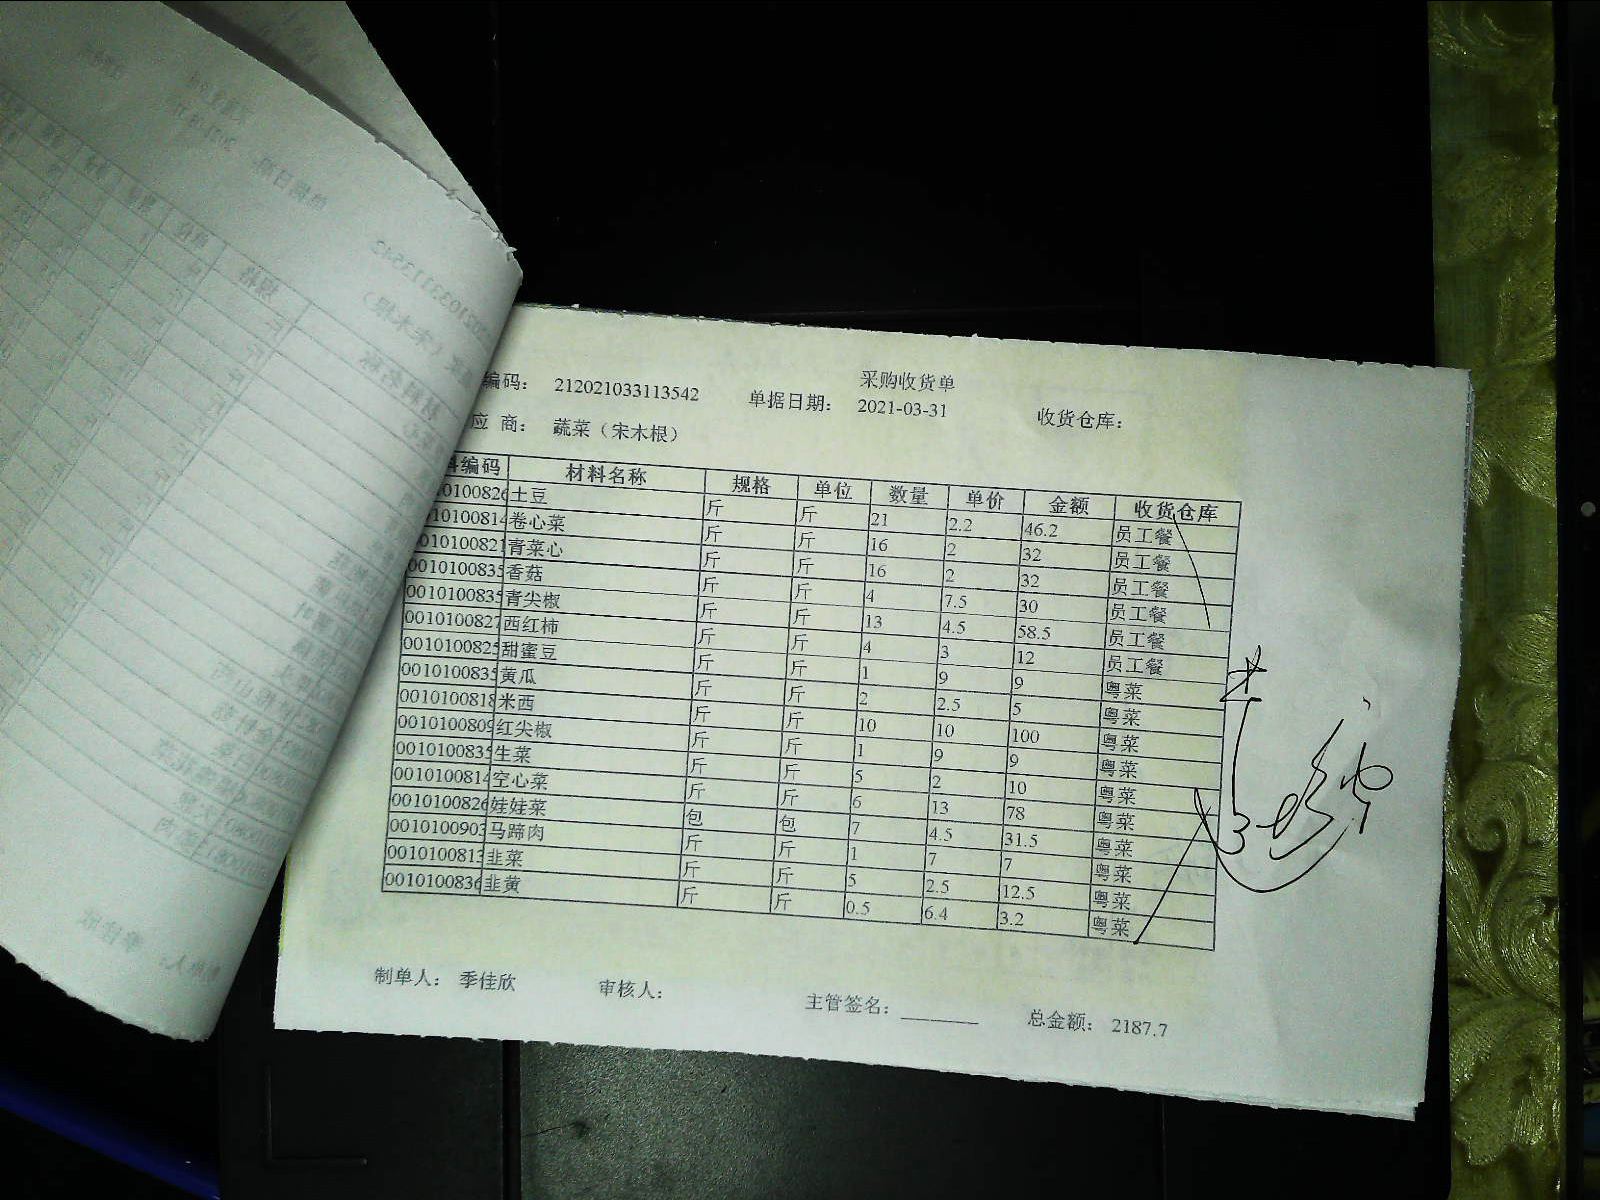 采购收货单
编码： 212021033113542 单据日期： 2021-03-31 收货仓库：
应 商： 蔬菜（宋木根）
料编码 材料名称 规格 单位 数量 单价 金额 收货仓库
010100826 土豆 斤 斤 21 2.2 46.2 员工餐
010100814 卷心菜 斤 斤 16 2 32 员工餐
010100821 青菜心 斤 斤 16 2 32 员工餐
0010100835 香菇 斤 斤 4 7.5 30 员工餐
0010100835 青尖椒 斤 斤 13 4.5 58.5 员工餐
0010100827 西红柿 斤 斤 4 3 12 员工餐
0010100825 甜蜜豆 斤 斤 1 9 9 粤菜
0010100835 黄瓜 斤 斤 2 2.5 5 粤菜
0010100818 米西 斤 斤 10 10 100 粤菜
0010100809 红尖椒 斤 斤 1 9 9 粤菜
0010100835 生菜 斤 斤 5 2 10 粤菜
0010100814 空心菜 斤 斤 6 13 78 粤菜
0010100826 娃娃菜 包 包 7 4.5 31.5 粤菜
0010100903 马蹄肉 斤 斤 1 7 7 粤菜
0010100813 韭菜 斤 斤 5 2.5 12.5 粤菜
0010100836 韭黄 斤 斤 0.5 6.4 3.2 粤菜
制单人： 季佳欣 审核人： 主管签名： 总金额： 2187.7